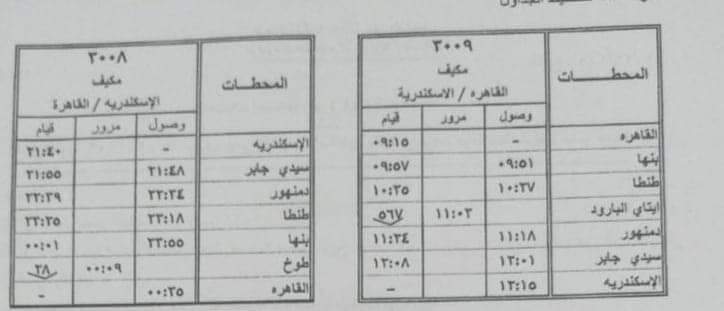 الجداول
المحطــات
٣٠٠٩
مكيف
القاهره / الاسكندرية
وصول مرور قيام
القاهره - ٠٩:١٥
بنها ٠٩:٥١ ٠٩:٥٧
طنطا ١٠:٢٧ ١٠:٣٥
ايتاي البارود ١١:٠٣ ٥٦٧
دمنهور ١١:١٨ ١١:٢٤
سيدي جابر ١٢:٠١ ١٢:٠٨
الإسكندريه ١٢:١٥ -
المحطــات
٣٠٠٨
مكيف
الإسكندريه / القاهرة
وصول مرور قيام
الإسكندريه - ٢١:٤٠
سيدي جابر ٢١:٤٨ ٢١:٥٥
دمنهور ٢٢:٣٤ ٢٢:٣٩
طنطا ٢٣:١٨ ٢٣:٢٥
بنها ٢٣:٥٥ ٠٠:٠١
طوخ ٠٠:٠٩ ٢٨
القاهره ٠٠:٣٥ -